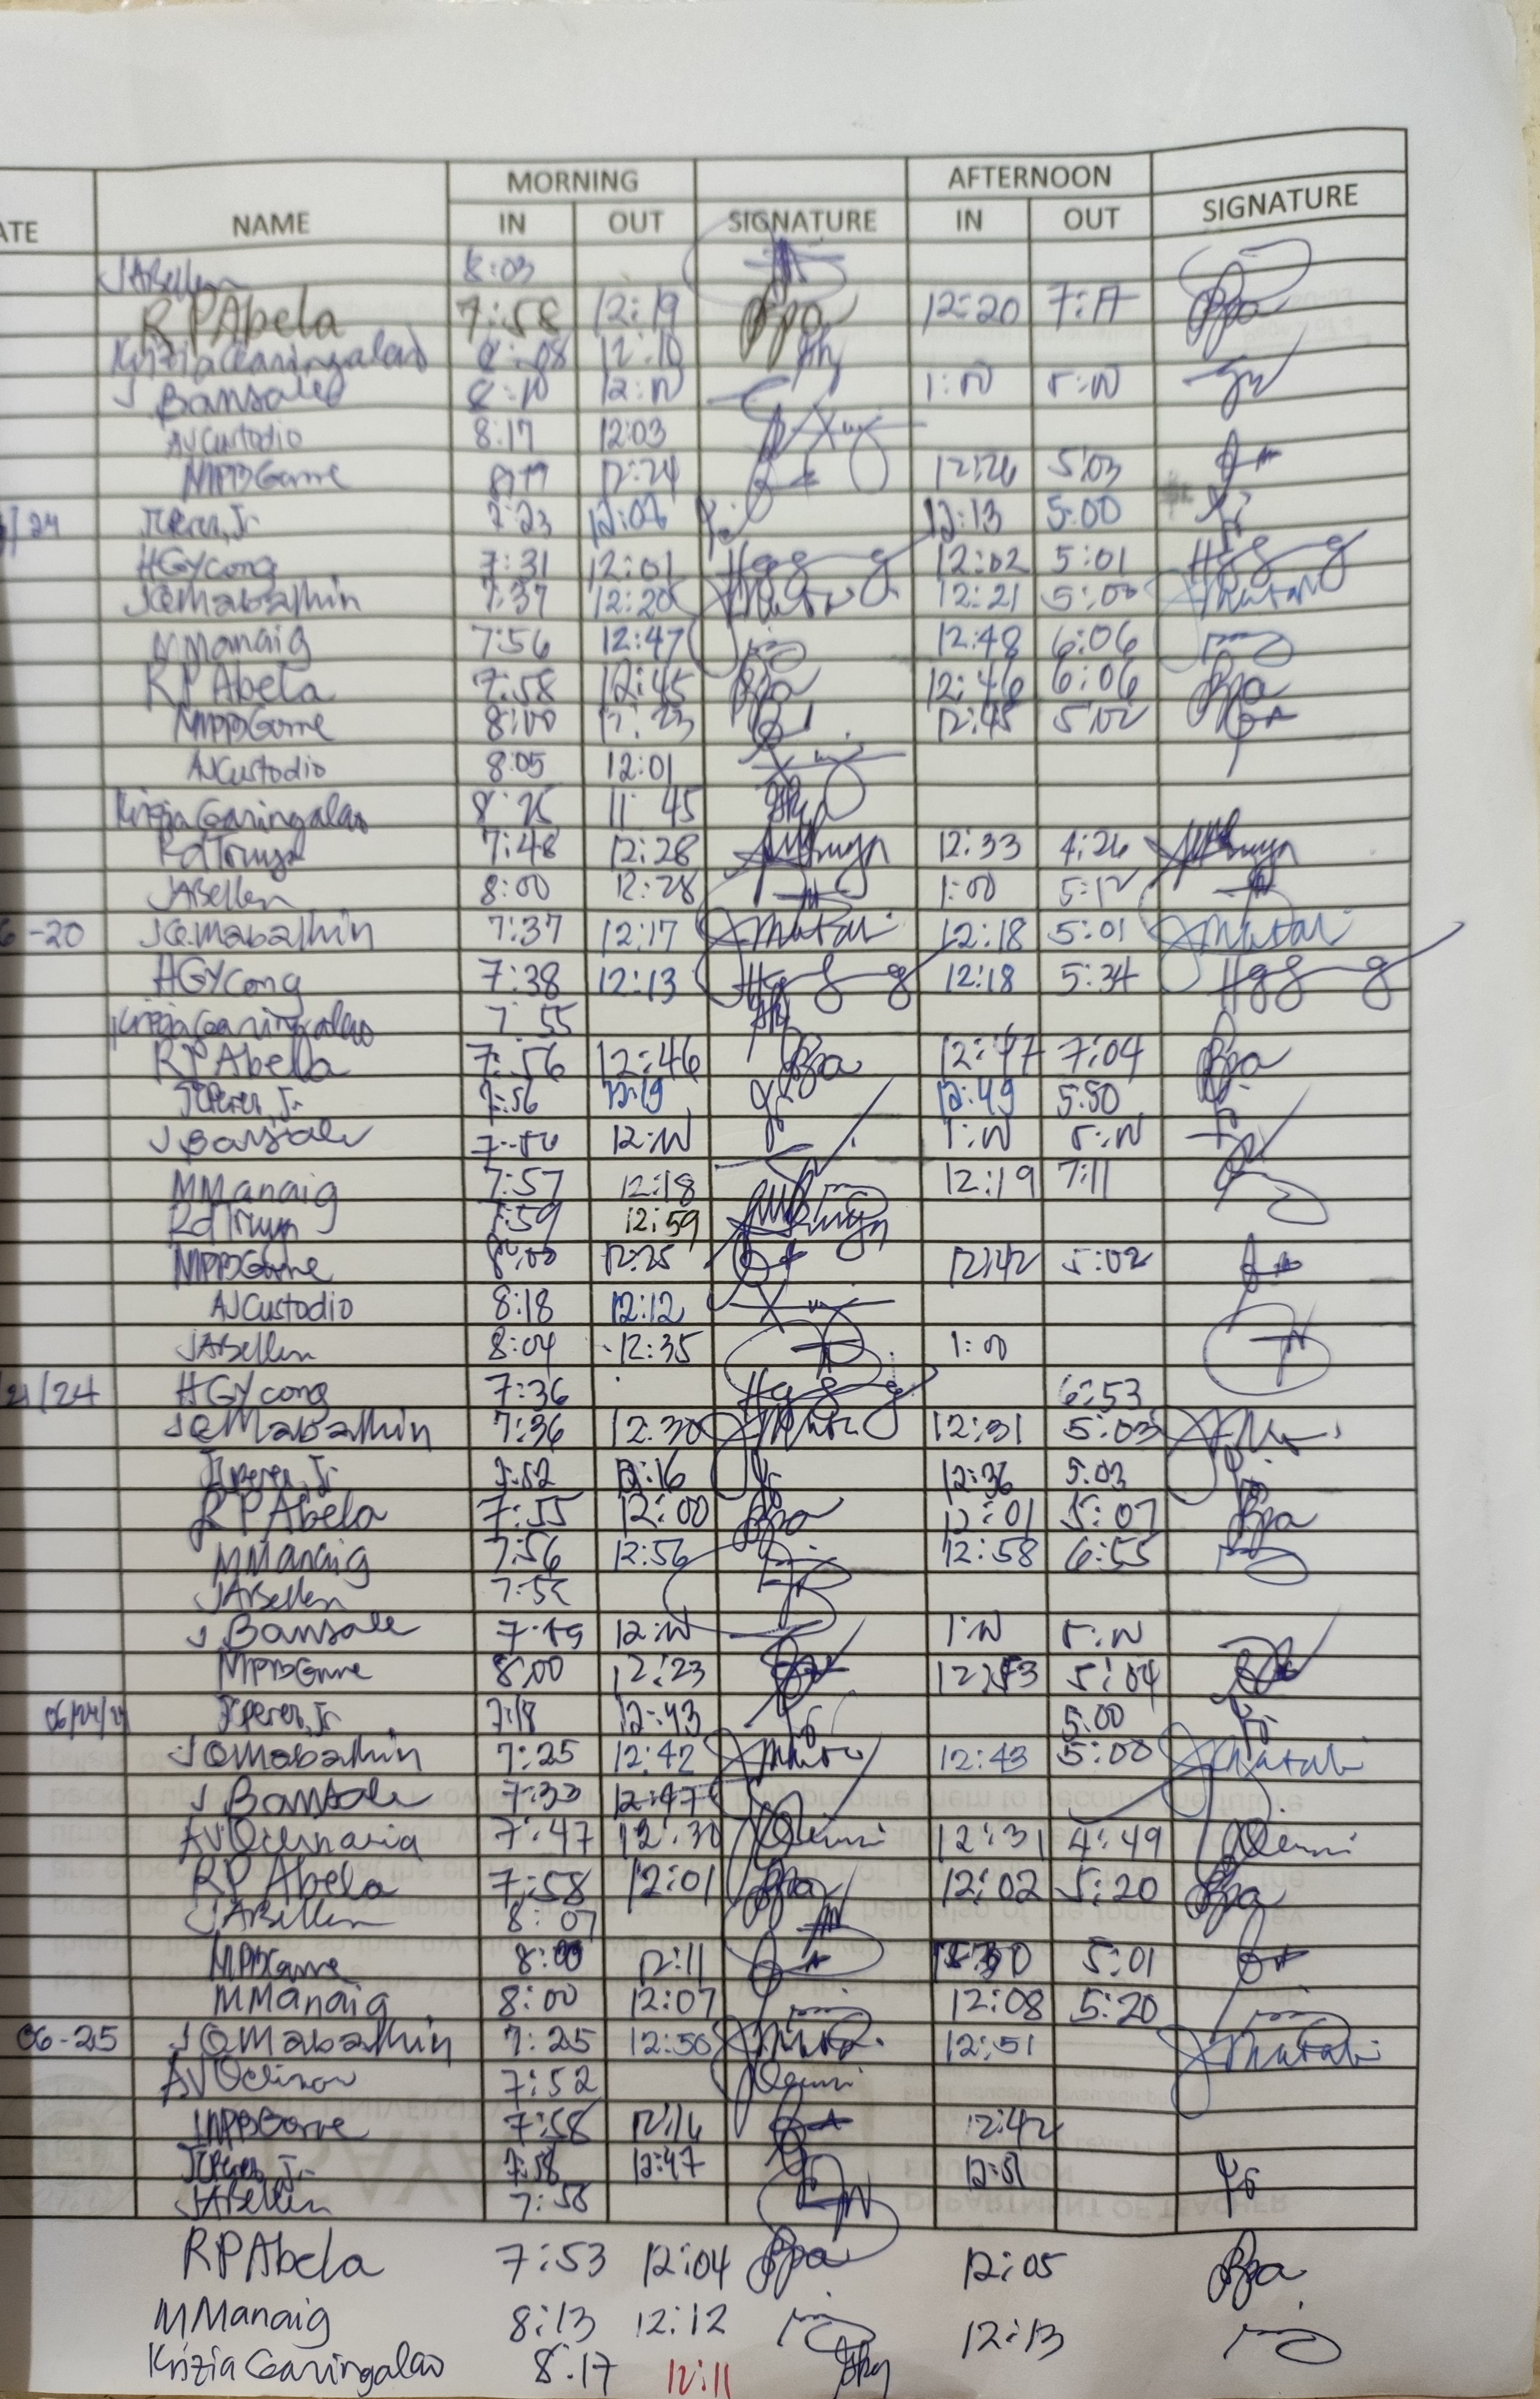 MORNING AFTERNOON
ATE NAME IN OUT SIGNATURE IN OUT SIGNATURE
JABellen 8:03
RPAbela 7:58 12:19 12:20 7:17
Krizia Garingalao 8:08 12:10
J Bansale 8:10 12:00 1:00 5:00
AJCustodio 8:17 12:03
MPBGame 8:19 12:24 12:26 5:03
/24 JCPerez, Jr 7:23 12:13 5:00
HGYcong 7:31 12:01 12:02 5:01
JQMabalhin 7:37 12:20 12:21 5:00
MManaig 7:56 12:47 12:48 6:06
RPAbela 7:58 12:45 12:46 6:06
MPBGame 8:00 12:23 12:45 5:02
AJCustodio 8:05 12:01
Krizia Garingalao 8:25 11:45
7:48 12:28 12:33 4:26
JABellen 8:00 12:28 1:00 5:12
6-20 JQMabalhin 7:37 12:17 12:18 5:01
HGYcong 7:38 12:13 12:18 5:34
Krizia Garingalao 7:55
RPAbela 7:56 12:46 12:47 7:04
JCPerez, Jr 7:56 12:19 12:49 5:50
J Bansale 12:00 1:00 5:00
MManaig 7:57 12:18 12:19 7:11
7:59 12:59
MPBGame 8:00 12:25 12:42 5:02
AJCustodio 8:18 12:12
JABellen 8:04 12:35 1:00
21/24 HGYcong 7:36 6:53
JQMabalhin 7:36 12:30 12:31 5:03
JCPerez, Jr 7:52 12:16 12:36 5:03
RPAbela 7:55 12:00 12:01 5:07
MManaig 7:56 12:56 12:58 6:55
JABellen 7:55
J Bansale 7:59 12:00 1:00 5:00
MPBGame 8:00 12:23 12:53 5:04
06/24/24 JCPerez, Jr 7:18 12:43 5:00
JQMabalhin 7:25 12:42 12:43 5:00
J Bansale 7:30 12:47
7:47 12:30 12:31 4:49
RPAbela 7:58 12:01 12:02 5:20
JABellen 8:07
MPBGame 8:00 12:11 5:01
MManaig 8:00 12:07 12:08 5:20
06-25 JQMabalhin 7:25 12:50 12:51
7:52
MPBGame 7:58 12:16 12:42
JCPerez, Jr 7:58 12:47 12:51
JABellen 7:58
RPAbela 7:53 12:04 12:05
MManaig 8:13 12:12 12:13
Krizia Garingalao 8:17 12:11